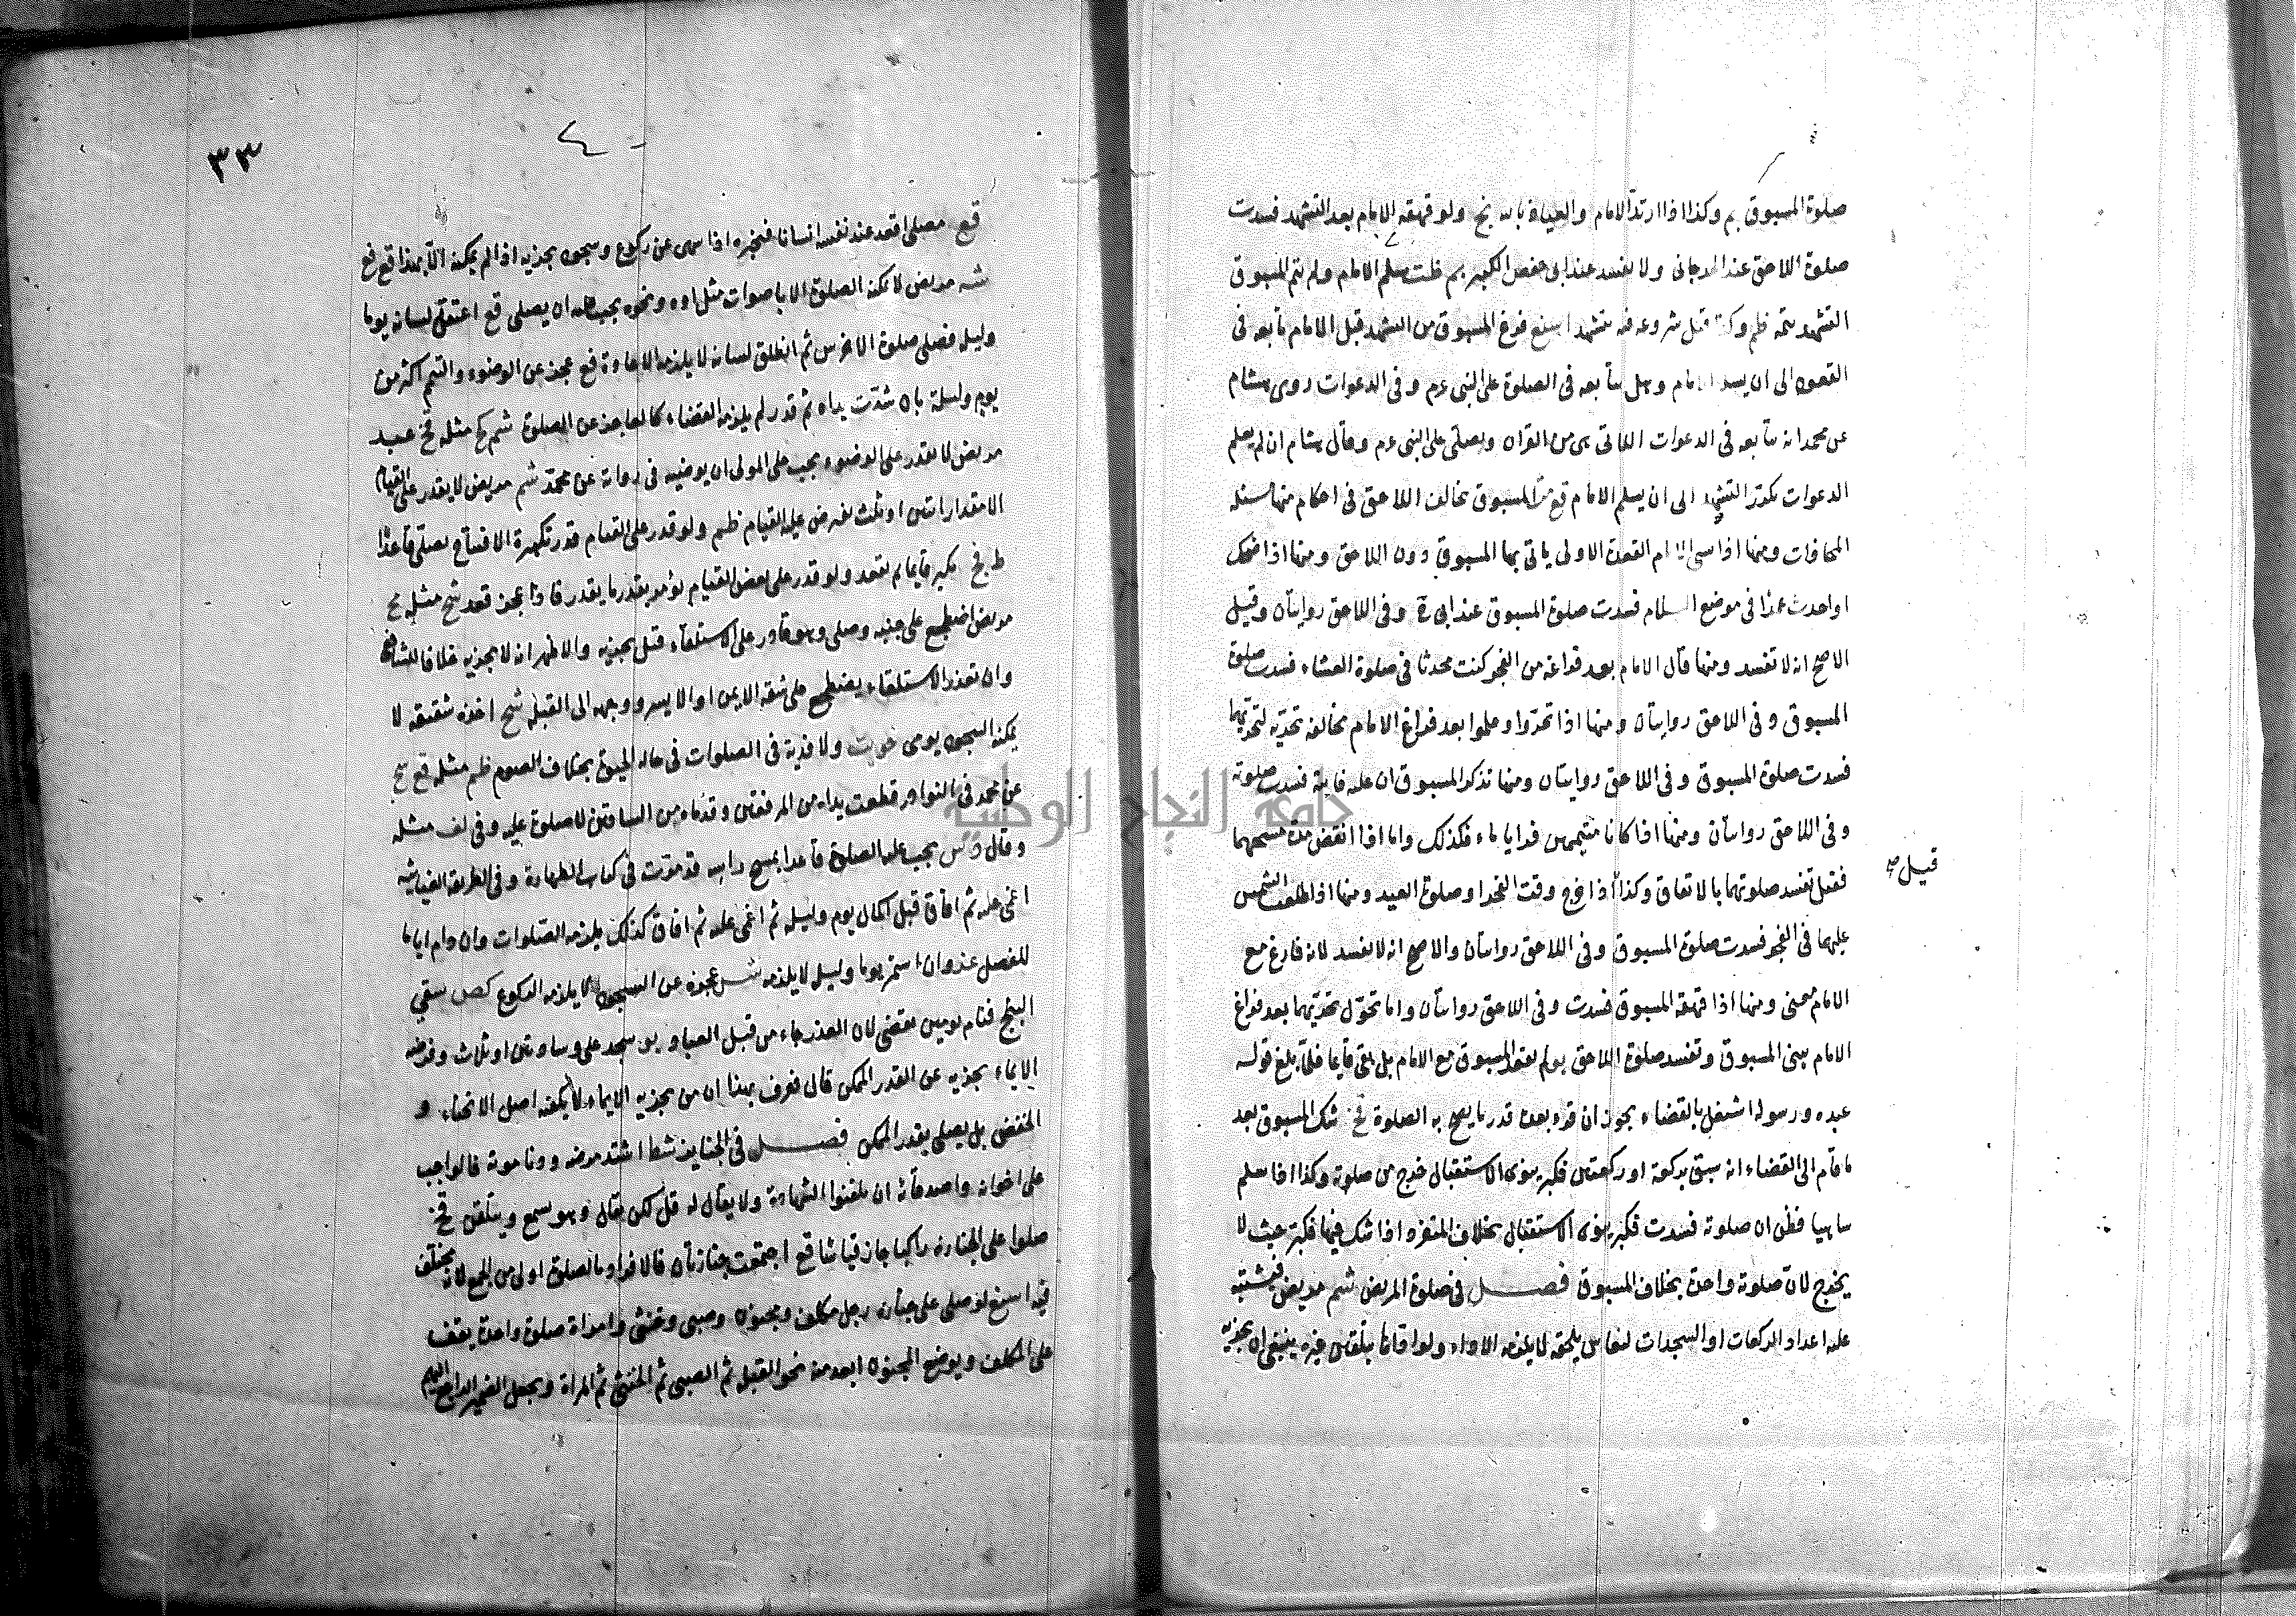 صلوة المسبوق بم وكذا اذا ارتد الامام والعياذ بالله نج ولو قهقه الامام بعد التشهد فسدت
صلوة اللاحق عند الجرجانى ولا تفسد عند ابى حفص الكبير بم ظت سلم الامام ولم يتم المسبوق
التشهد يتمه ظم وكذا قبل شروعه فيه يتشهد اسنع فرغ المسبوق من التشهد قبل الامام تابعه فى
القعود الى ان يسلم الامام وهل يتابعه فى الصلوة على النبى عم وفى الدعوات روى هشام
عن محمد انه يتابعه فى الدعوات اللاتى هى من القران ويصلى على النبى عم وقال هشام ان لم يعلم
الدعوات يكرر التشهد الى ان يسلم الامام قع المسبوق يخالف اللاحق فى احكام منها مسئلة
المحاذات ومنها اذا سهى الامام القعدة الاولى ياتى بها المسبوق دون اللاحق ومنها اذا ضحك
او احدث عمدا فى موضع السلام فسدت صلوة المسبوق عند ابى ح وفى اللاحق روايتان وقيل
الاصح انه لا تفسد ومنها قال الامام بعد فراغه من الفجر كنت محدثا فى صلوة العشاء فسدت صلوة
المسبوق وفى اللاحق روايتان ومنها اذا تحروا وعلموا بعد فراغ الامام مخالفة تحريه لتحريهما
فسدت صلوة المسبوق وفى اللاحق روايتان ومنها تذكر المسبوق ان عليه فايتة فسدت صلوته
وفى اللاحق روايتان ومنها اذا كانا متيممين فرايا ماء فكذلك واما اذا انقضى مدة مسحهما
قيل صح
فقيل تفسد صلوتهما بالاتفاق وكذا اذا خرج وقت الفجر او صلوة العيد ومنها اذا طلعت الشمس
عليهما فى الفجر فسدت صلوة المسبوق وفى اللاحق روايتان والاصح انه لا تفسد لانه فارغ مع
الامام معنى ومنها اذا قهقه المسبوق فسدت وفى اللاحق روايتان واما تحول تحريهما بعد فراغ
الامام يبنى المسبوق وتفسد صلوة اللاحق ولم يقعد المسبوق مع الامام بل بقى قايما فلما بلغ قوله
عبده ورسوله اشتغل بالقضاء يجوز ان قره بعده قدر ما يصح به الصلوة نج شك المسبوق بعد
ما قام الى القضاء انه سبق بركعة او ركعتين فكبر ينوى الاستقبال خرج من صلوته وكذا اذا سلم
ساهيا فظن ان صلوته فسدت فكبر ينوى الاستقبال بخلاف المنفرد اذا شك فيها فكبر حيث لا
يخرج لان صلوته واحدة بخلاف المسبوق فصل فى صلوة المريض شم مريض يشتبه
عليه اعداد الركعات او السجدات لنعاس يلحقه لا يلزمه الاداء ولو اداها بتلقين غيره ينبغى ان يجزيه
٣٣
قع مصلى اقعد عند نفسه انسانا فيخبره اذا سهى عن ركوع وسجود يجزيه اذا لم يمكنه الا بهذا قع فع
شه مريض لا يمكنه الصلوة الا باصوات مثل اوه ونحوه يجب عليه ان يصلى قع اعتقل لسانه يوما
وليلة فصلى صلوة الاخرس ثم انطلق لسانه لا يلزمه الاعادة قع عجز عن الوضوء والتيمم اكثر من
يوم وليلة بان شدت يداه ثم قدر لم يلزمه القضاء كالعاجز عن الصلوة شم كح مثله نج عبد
مريض لا يقدر على الوضوء يجب على المولى ان يوضيه فى رواية عن محمد شم مريض لا يقدر على القيام
الا مقدار ايتين او ثلث يفرض عليه القيام ظم ولو قدر على القيام قدر تكبيرة الافتتاح يصلى قاعدا
ط نج يكبر قايما ثم يقعد ولو قدر على بعض القيام يؤمر بقدر ما يقدر فاذا عجز قعد شح مثله مح
مريض اضطجع على جنبه وصلى وهو قادر على الاستلقاء قيل يجزيه والاظهر انه لا يجزيه خلافا للشافعى
وان تعذر الاستلقاء يضطجع على شقه الايمن او الايسر ووجهه الى القبلة شح اخذه شقيقة لا
يمكنه السجود يومى ولا فدية فى الصلوات فى حالة الحيوة بخلاف الصوم ظم مثله قع مح
عن محمد فى النوادر قطعت يداه من المرفقين وقدماه من الساقين لا صلوة عليه وفى لف مثله
وقال يجب عليه الصلوة قاعدا يمسح راسه قد مرت فى كتاب الطهارة وفى الطريقة الغياثية
اغمى عليه ثم افاق قبل اكمال يوم وليلة ثم اغمى عليه ثم افاق كذلك يلزمه الصلوات وان دام اياما
للفصل عذر وان استمر يوما وليلة لا يلزمه عجزه عن السجود لا يلزمه الركوع كص سقى
البنج فنام يومين يقضى لان العذر جاء من قبل العباد يو سجد على وسادتين او ثلاث وفرضه
الايماء يجزيه عن القدر الممكن قال فعرف بهذا ان من يجزيه الايماء لا يكفيه اصل الانحناء و
المنقضى بل يصلى بقدر الممكن فصل فى الجنايز شط اشتد مرضه ودنا موته فالواجب
على اخوانه واصدقائه ان يلقنوا الشهادة ولا يقال له قل لكن يقال وهو يسمع ويتلقن نج
صلوا على الجنازة ركبانا جاز قياسا قع اجتمعت جنازتان فالافراد بالصلوة اولى من الجمع لانه مختلف
فيه اسنع لو صلى على جنازة رجل مكلف ومجنون وصبى وخنثى وامراة صلوة واحدة يقف
على المكلف ويوضع المجنون ابعد منه نحو القبلة ثم الصبى ثم الخنثى ثم المراة ويجعل الضمير الراجع اليهم
جامعة النجاح الوطنية